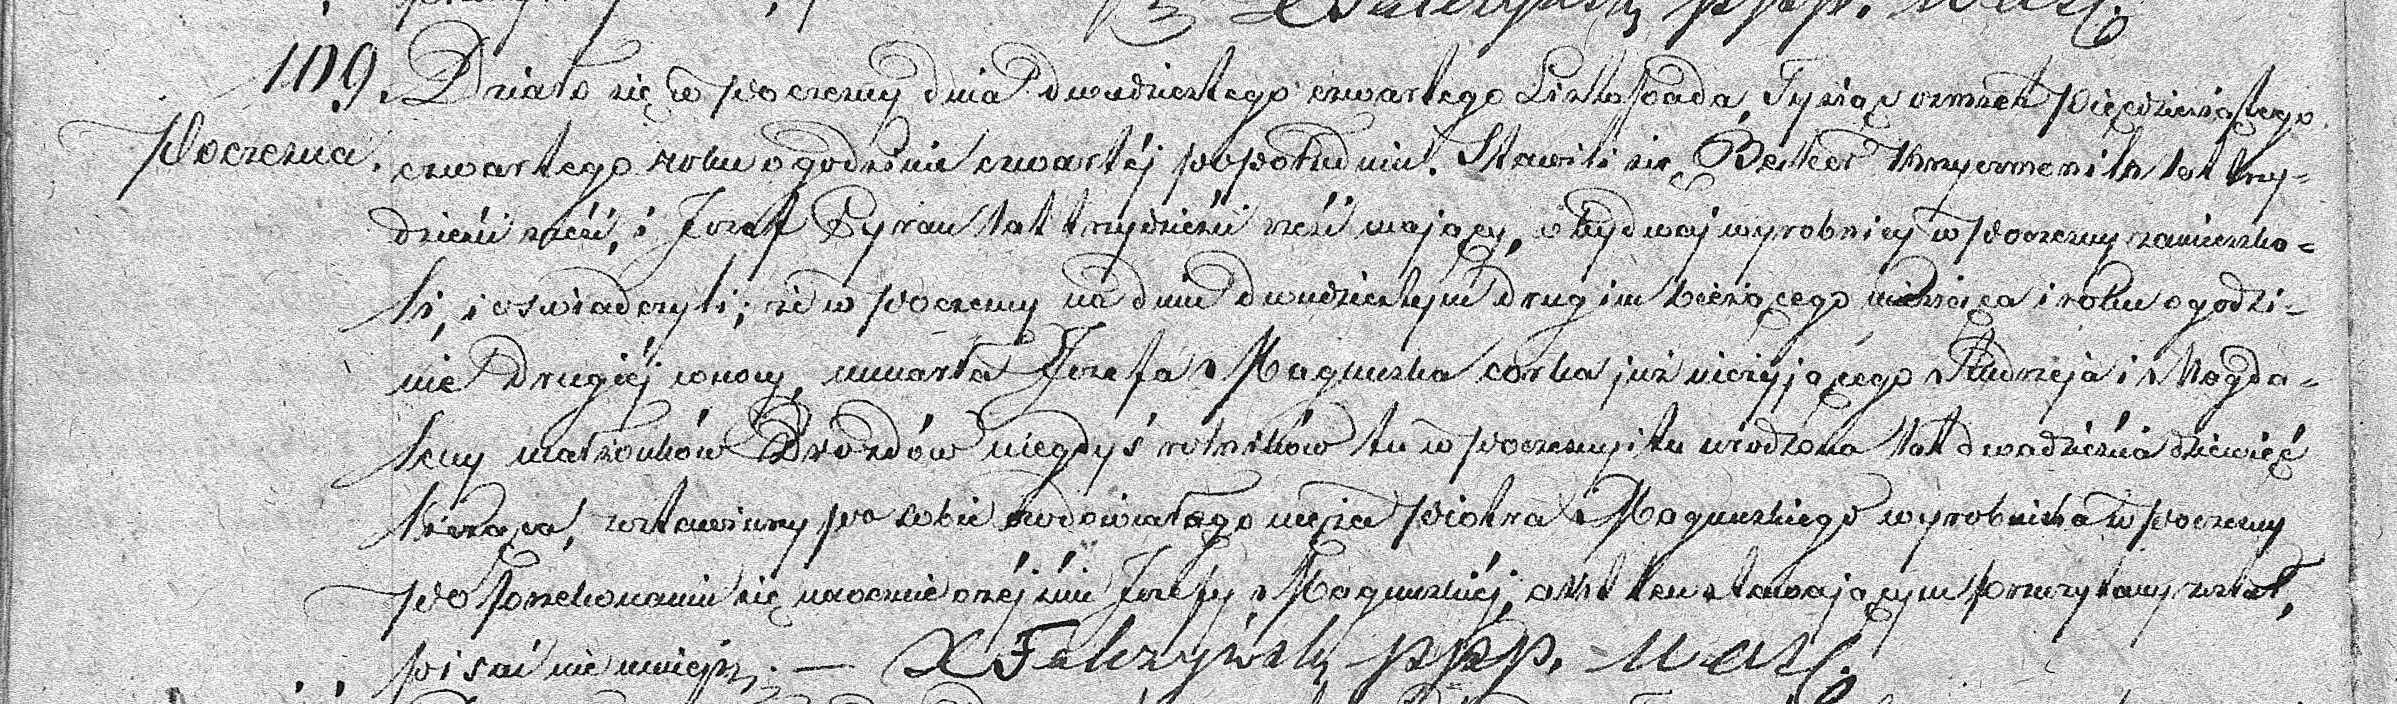 109. Działo się w Poczesny dnia dwudziestego czwartego Listopada Tysiąc ośmset Pięćdziesiątego
Poczesna. czwartego roku o godzinie czwartéj popołudniu. Stawili się lat trzy-
dzieści sześć, i Jozef Pyrau lat trzydzieści sześć mający, obydwaj wyrobnicy w Poczesny zamieszka-
li, i oswiadczyli; że w Poczesny na dniu dwudziestym drugim bieżącego miesiąca i roku o godzi-
nie drugiéj w nocy, umarła Jozefa Magnuska corka już nieżyjącego Andrzeja i Magda-
leny małżonków Drozdów niegdyś rolników tu w Poczesny i tu urodzona lat dwadzieścia dziewięć
licząca, zostawiwszy po sobie owdowiałego męża Piotra Magnuskiego wyrobnika w Poczesny
Po przekonaniu się naocznie o zéjściu Jozefy Magnuskiéj, akt ten stawającym przeczytany został,
pisać nie umieją. — X Falczyński